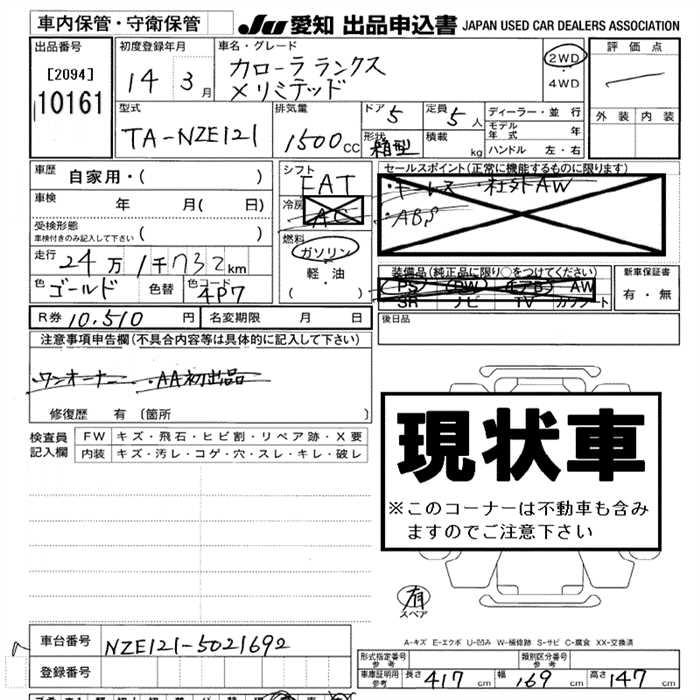 車内保管・守衛保管
JU 愛知 出品申込書 JAPAN USED CAR DEALERS ASSOCIATION
出品番号
[2094]
10161
初度登録年月
14年 3月
車名・グレード
カローラ ランクス
X リミテッド
2WD
・
4WD
評価点
外装 内装
型式
TA-NZE121
排気量
1500cc
ドア 5
形状 箱型
定員 5人
積載 kg
ディーラー・並行
モデル年式 年
ハンドル 左・右
車歴 自家用・( )
車検 年 月( 日)
受検形態
車検付きのみ記入して下さい ( )
走行 24万1千732km
色 ゴールド 色替 色コード 4P7
シフト
FAT
冷房
AC
燃料
ガソリン
軽・油
( )
セールスポイント(正常に機能するものに限ります)
・キーレス ・社外AW
・ABS
装備品(純正品に限り○をつけてください)
PS PW エアB AW
SR ナビ TV カワシート
新車保証書
有・無
R券 10,510円 名変期限 月 日
後日品
注意事項申告欄(不具合内容等は具体的に記入して下さい)
ワンオーナー ・AA初出品
修復歴 有〔箇所 〕
検査員記入欄
FW キズ・飛石・ヒビ割・リペア跡・X要
内装 キズ・汚レ・コゲ・穴・スレ・キレ・破レ
現状車
※このコーナーは不動車も含み
ますのでご注意下さい
有
スペア
A-キズ E-エクボ U-凹み W-補修跡 S-サビ C-腐食 XX-交換済
車台番号 NZE121-5021692
登録番号
形式指定番号 参考 類別区分番号 参考
車庫証明用 参考 長さ 417cm 幅 169cm 高さ 147cm